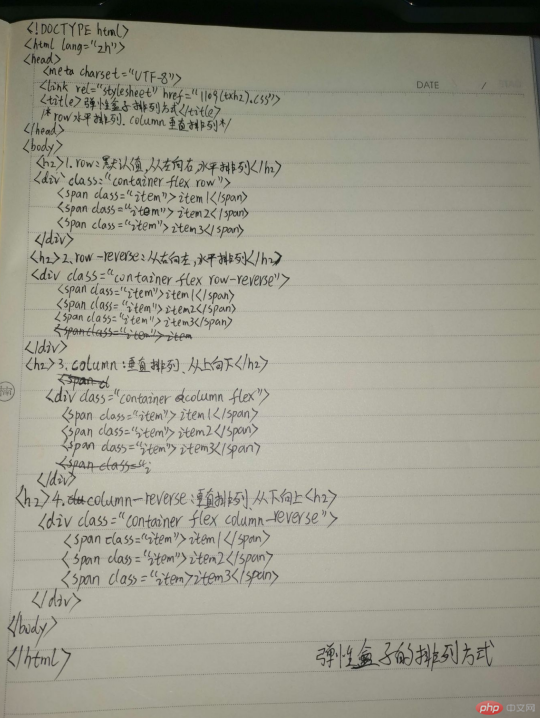 <!DOCTYPE html>
<html lang="zh">
<head>
<meta charset="UTF-8">
<link rel="stylesheet" href="1109(txhz).css">
DATE /
<title>弹性盒子排列方式</title>
/* row水平排列、column垂直排列*/
</head>
<body>
<h2>1.row:默认值,从左向右,水平排列</h2>
<div class="container flex row">
<span class="item">item1</span>
<span class="item">item2</span>
<span class="item">item3</span>
</div>
<h2>2.row-reverse:从右向左,水平排列</h2>
<div class="container flex row-reverse">
<span class="item">item1</span>
<span class="item">item2</span>
<span class="item">item3</span>
<span class="item">item
</div>
<h2>3.column:垂直排列、从上向下</h2>
<span cl
<div class="container column flex">
<span class="item">item1</span>
<span class="item">item2</span>
<span class="item">item3</span>
<span class="i
</div>
<h2>4.column-reverse:垂直排列、从下向上<h2>
<div class="container flex column-reverse">
<span class="item">item1</span>
<span class="item">item2</span>
<span class="item>item3</span>
</div>
</body>
</html>
弹性盒子的排列方式
php 中文网